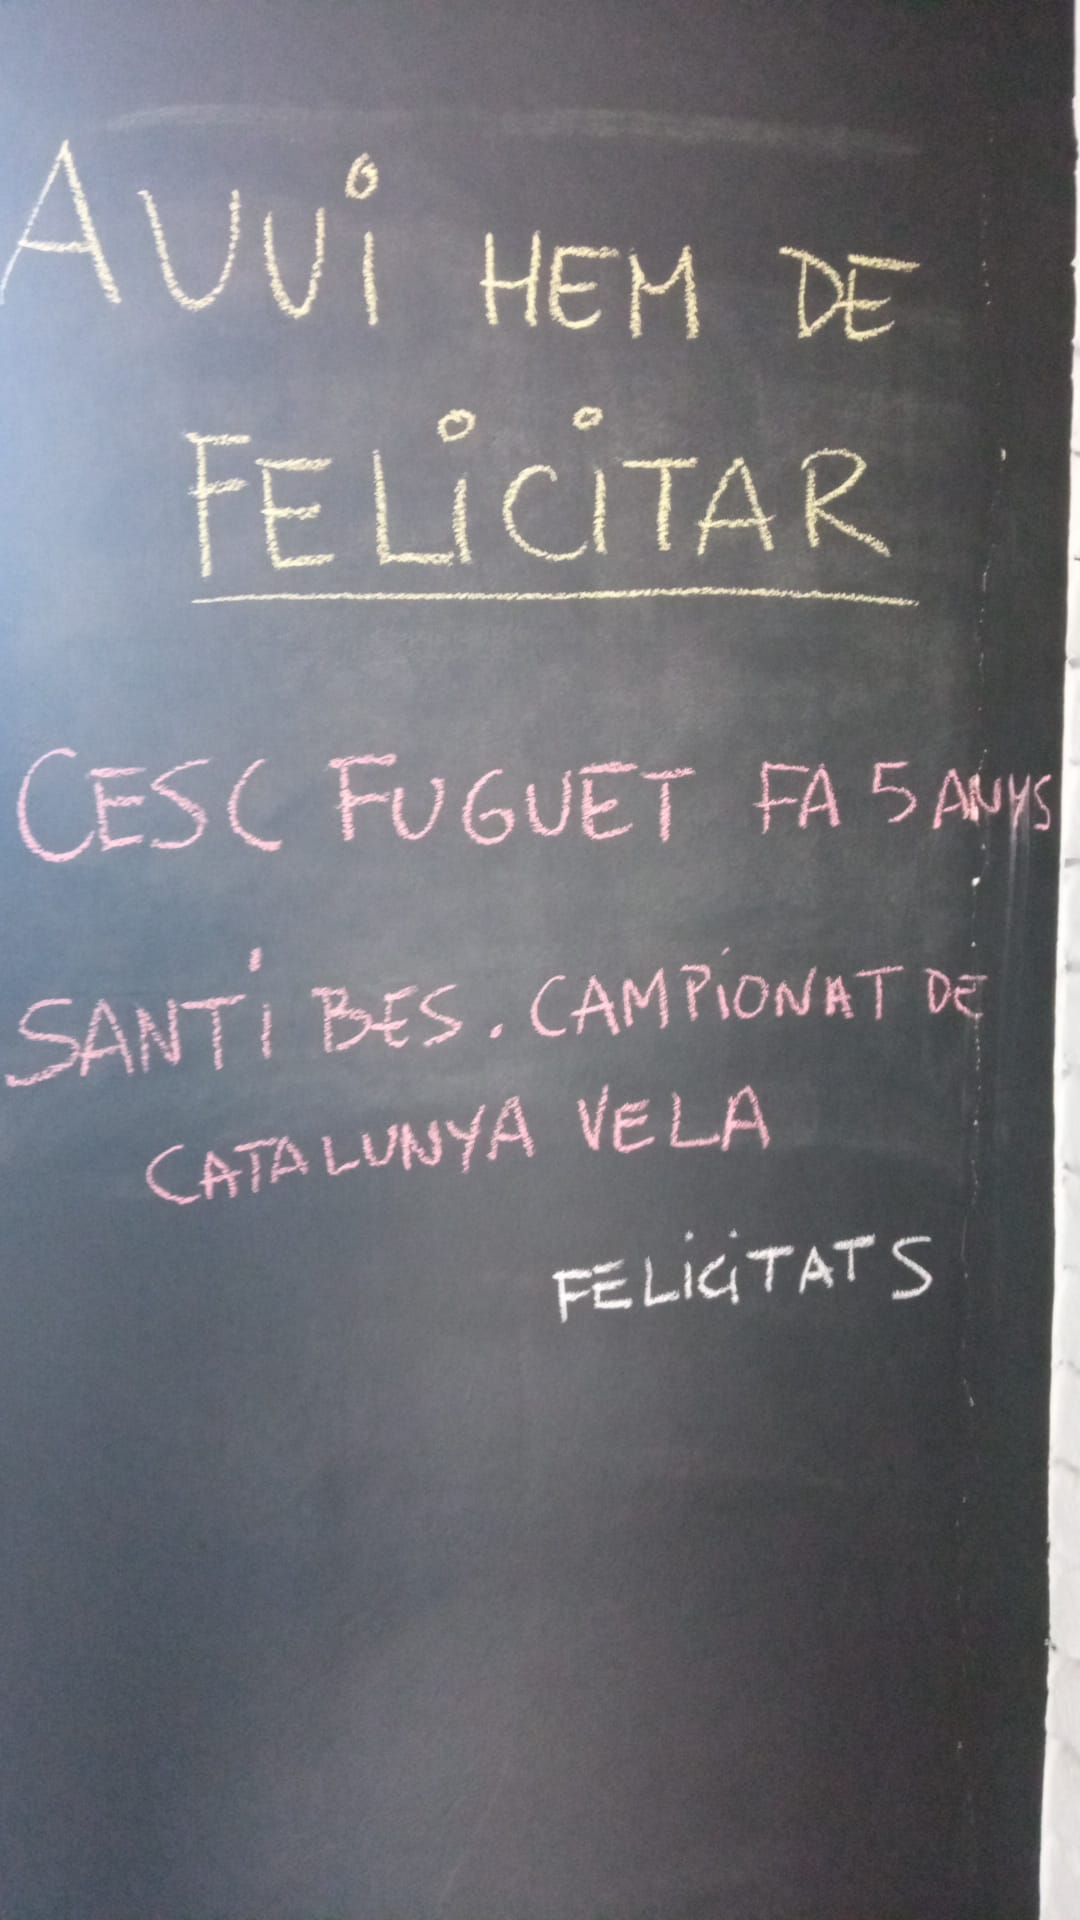 AVUi HEM DE
FELiCiTAR
CESC FUGUET FA 5 ANYS
SANTi BES. CAMPiONAT DE
CATALUNYA VELA
FELiCiTATS